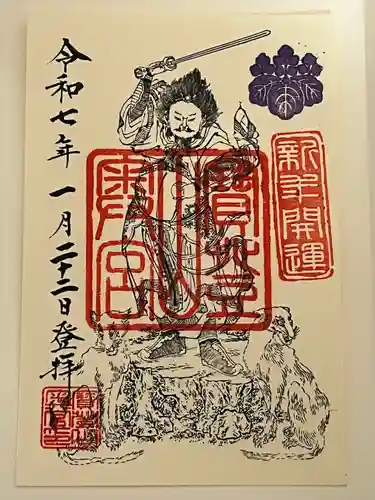 新年開運
寶登山
奥宮
令和七年一月二十二日登拝